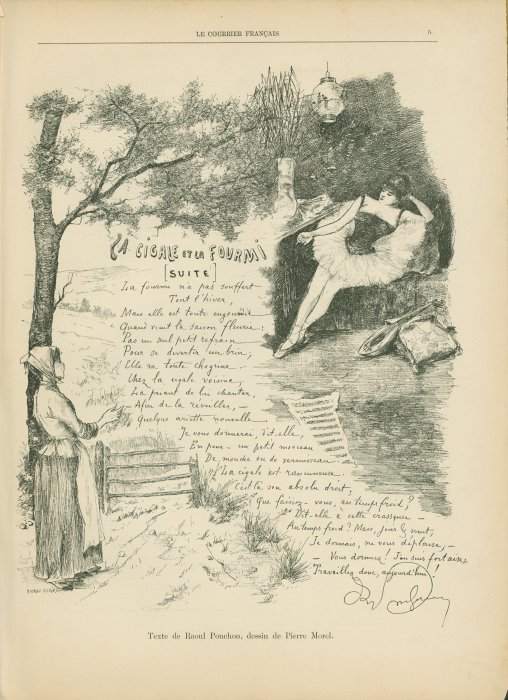 LE COURRIER FRANÇAIS
5
LA CIGALE ET LA FOURMI
[SUITE]
La fourmi n'a pas souffert
Tout l'hiver,
Mais elle est toute engourdie
Quand vint la saison fleurie:
Pas un seul petit refrain
Pour se divertir un brin,
Elle va toute chagrine
Chez la cigale voisine,
La priant de lui chanter,
– Afin de la réveiller, –
Quelque ariette nouvelle.
Je vous donnerai, dit-elle,
En pour – un petit morceau
De mouche ou de vermisseau.
La cigale est rancuneuse
C'est là son absolu droit.
Que faisiez-vous, au temps froid?
Dit-elle à cette crasseuse
Au temps froid? Mais, jour & nuit,
Je dormais, ne vous déplaise,
– Vous dormiez! J'en suis fort aise,
Travaillez donc, aujourd'hui
Texte de Raoul Ponchon, dessin de Pierre Morel.